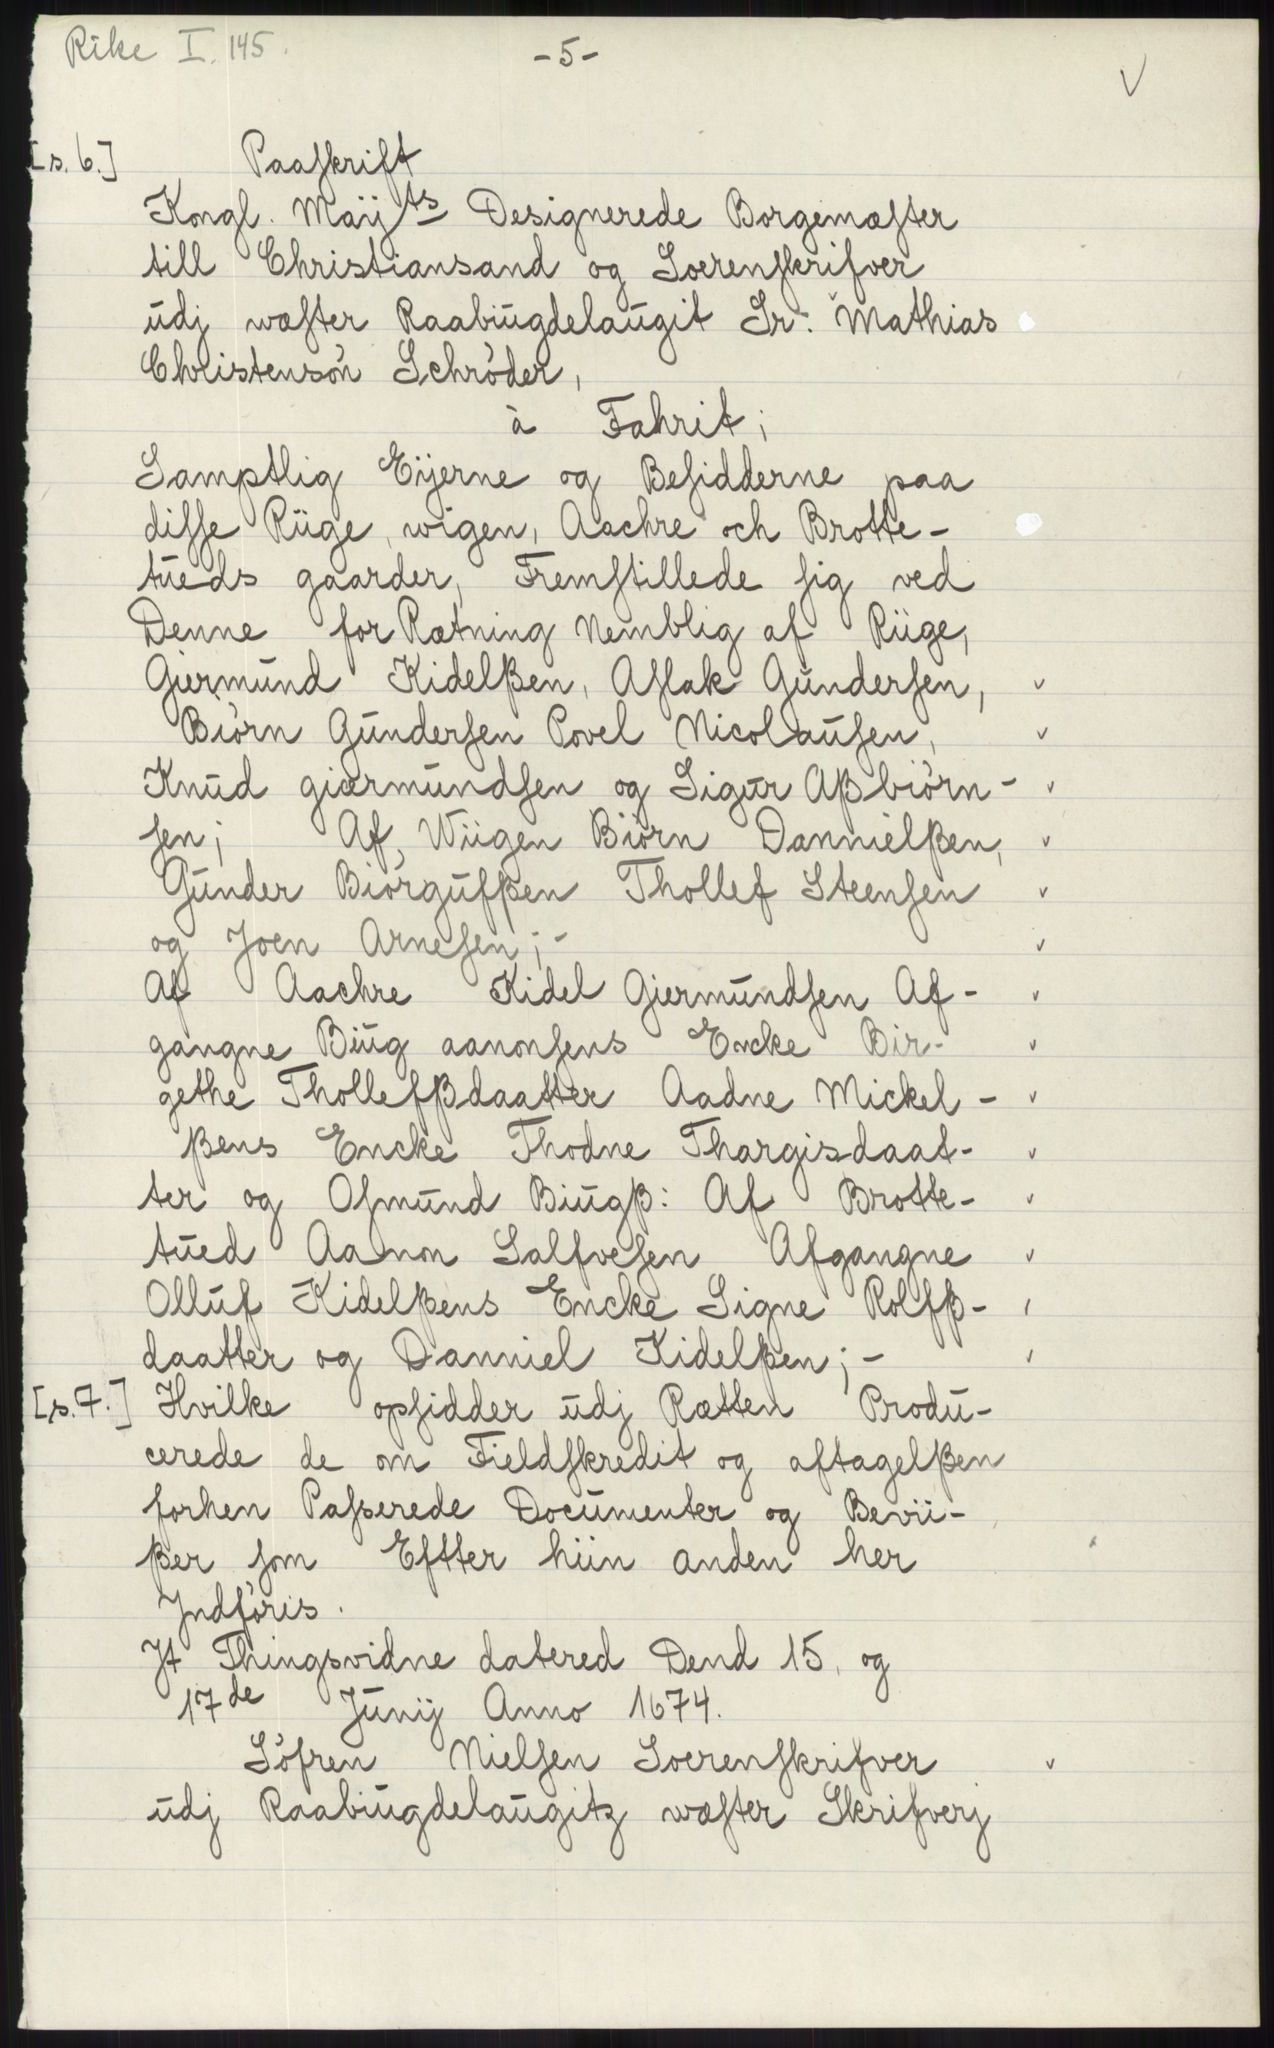 Rike I. 145.
-5-
V
[s. 6.] Paaskrift
Kongl. Maÿts Designerede Borgemæster
till Christiansand og Soerenskrifver
udj wæster Raabiugdelaugit Sr. Mathias
Christensön Schröder,
à Fahrit;
Samptlig Eÿerne og Besidderne paa
disse Rüge, wigen, Aachre och Brotte-
tueds gaarder, Fremstillede sig ved
Denne for Rætning Nemblig af Rüge,
Giermund Kidelßen, Aslak Gundersen,
Biörn Gundersen Povel Nicolausen,
Knud giermundsen og Sigur Aßbiörn-
sen; Af, Wiigen Biörn Dannielßen,
Gunder Biörgufßen Thollef Steensen
og Joen Arnesen;-
Af Aachre Kidel Giermundsen Af-
gangne Biug aanonsens Encke Bir-
gethe Thollefßdaatter Aadne Mickel-
ßens Encke Thodne Thargisdaat-
ter og Osmund Biugß: Af Brotte-
tued Aanon Salfvesen Afgangne
Olluf Kidelßens Encke Signe Rolfß-
daatter og Danniel Kidelßen;-
[s. 7.] Hvilke opsidder udj Rætten Produ-
cerede de om Fieldskredit og aftagelßen
forhen Passerede Documenter og Bevii-
ßer som Eftter hiin anden her
Jndföris.
Jt Thingsvidne datered Dend 15. og
17de Junÿ Anno 1674.
Söfren Nielsen Soerenskrifver
udj Raabiugdelaugitz wæster Skrifverj